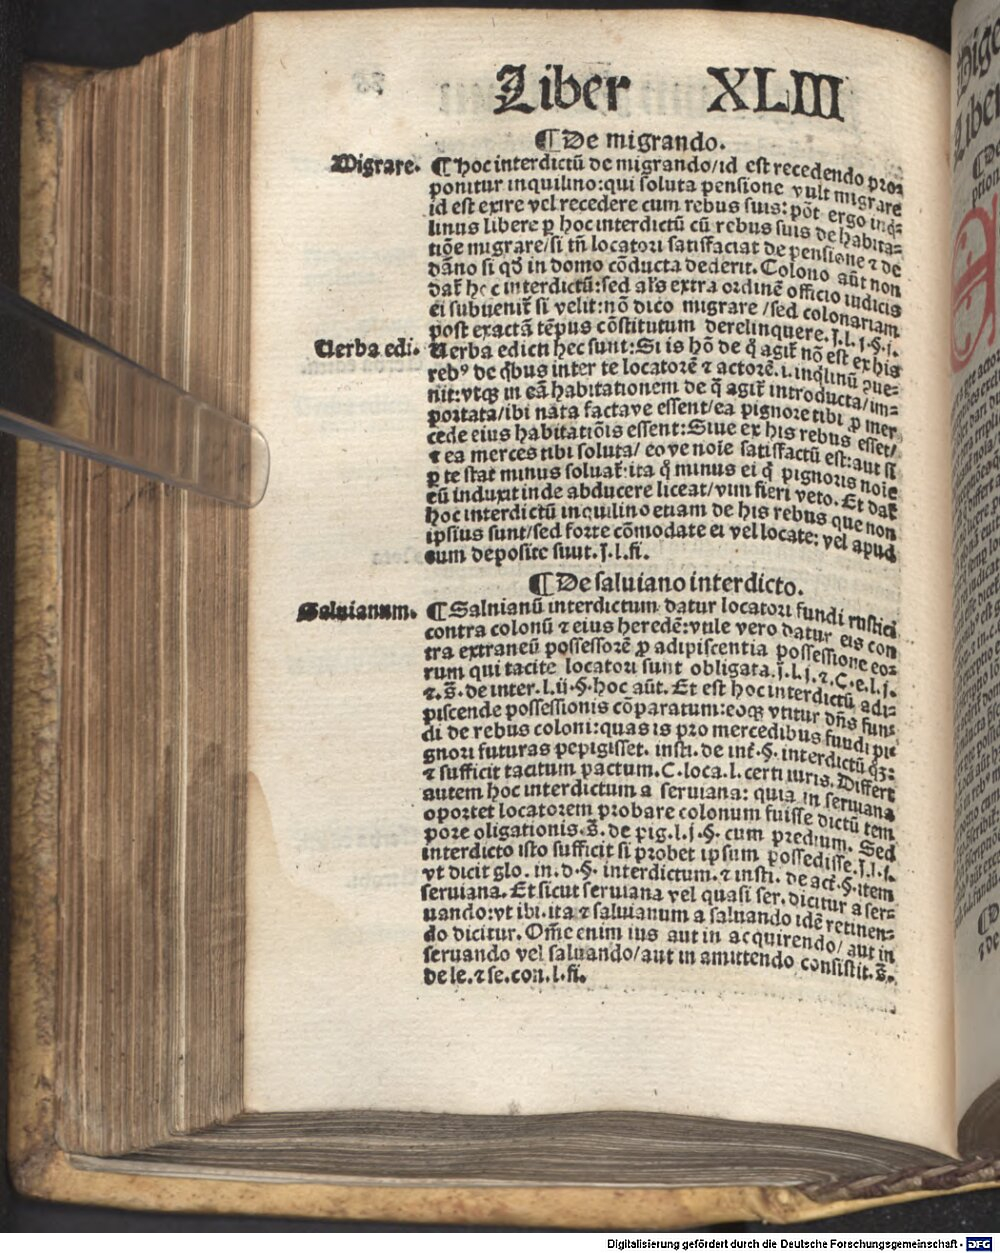 Liber XLIII
¶ De migrando.
Migrare.
¶ Hoc interdictū de migrando/id est recedendo pro⸗
ponitur inquilino:qui soluta pensione vult migrare
id est exire vel recedere cum rebus suis: pōt ergo inq̄⸗
linus libere ꝑ hoc interdictū cū rebus suis de habita⸗
tiōe migrare/si tn̄ locatori satisfaciat de pensione ⁊ de
dāno si qd̄ in domo cōducta dederit. Colono aūt non
dat̄ hoc interdictū:sed al's extra ordinē officio iudicis
ei subuenit̄ si velit:nō dico migrare /sed colonariam
post exactā tēpus cōstitutum derelinquere. j. l. j. §. j.
Uerba edi.
Uerba edicti hec sunt: Si is hō de q̄ agit̄ nō est ex his
rebꝰ de q̄bus inter te locatorē ⁊ actorē. i. inq̄linū ꝯue⸗
nit: vtqꝫ in eā habitationem de q̄ agit̄ introducta/im⸗
portata/ibi nata factave essent/ea pignore tibi ꝓ mer
cede eius habitatiōis essent: Siue ex his rebus esset/
⁊ ea merces tibi soluta/ eove noīe satisfactū est: aut si
ꝑ te stat minus soluat̄: ita q̄ minus ei q̄ pignoris noīe
eū induxit inde abducere liceat/vim fieri veto. Et dat̄
hoc interdictū inquilino etiam de his rebus que non
ipsius sunt/sed forte cōmodate ei vel locate: vel apud
eum deposite sunt. j. l. fi.
¶ De saluiano interdicto.
Saluianum.
¶ Salnianū interdictum datur locatori fundi rustici
contra colonū ⁊ eius heredē: vtile vero datur eis con
tra extraneū possessorē ꝓ adipiscentia possessione eo⸗
rum qui tacite locatori sunt obligata. j. l. j. ⁊. C. e. l. j.
⁊. s̄. de inter. l. ij. §. hoc aūt. Et est hoc interdictū adi⸗
piscende possessionis cōparatum: eoqꝫ vtitur dn̄s fun⸗
di de rebus coloni: quas is pro mercedibus fundi pi⸗
gnori futuras pepigisset. insti. de int̄. §. interdictū q̄ꝫ:
⁊ sufficit tacitum pactum. C. loca. l. certi iuris. Differt
autem hoc interdictum a seruiana: quia in seruiana
oportet locatorem probare colonum fuisse dictū tem
pore oligationis. s̄. de pig. l. j. §. cum predium. Sed
interdicto isto sufficit si probet ipsum possedisse. j. l. j.
vt dicit glo. in. d. §. interdictum. ⁊ insti. de act̄. §. item
seruiana. Et sicut seruiana vel quasi ser. dicitur a ser⸗
uando: vt ibi. ita ⁊ saluianum a saluando idē retinen⸗
do dicitur. Om̄e enim ius aut in acquirendo/ aut in
seruando vel saluando/aut in amittendo consistit. s̄.
de le. ⁊ se. con. l. fi.
Digitalisierung gefördert durch die Deutsche Forschungsgemeinschaft - DFG